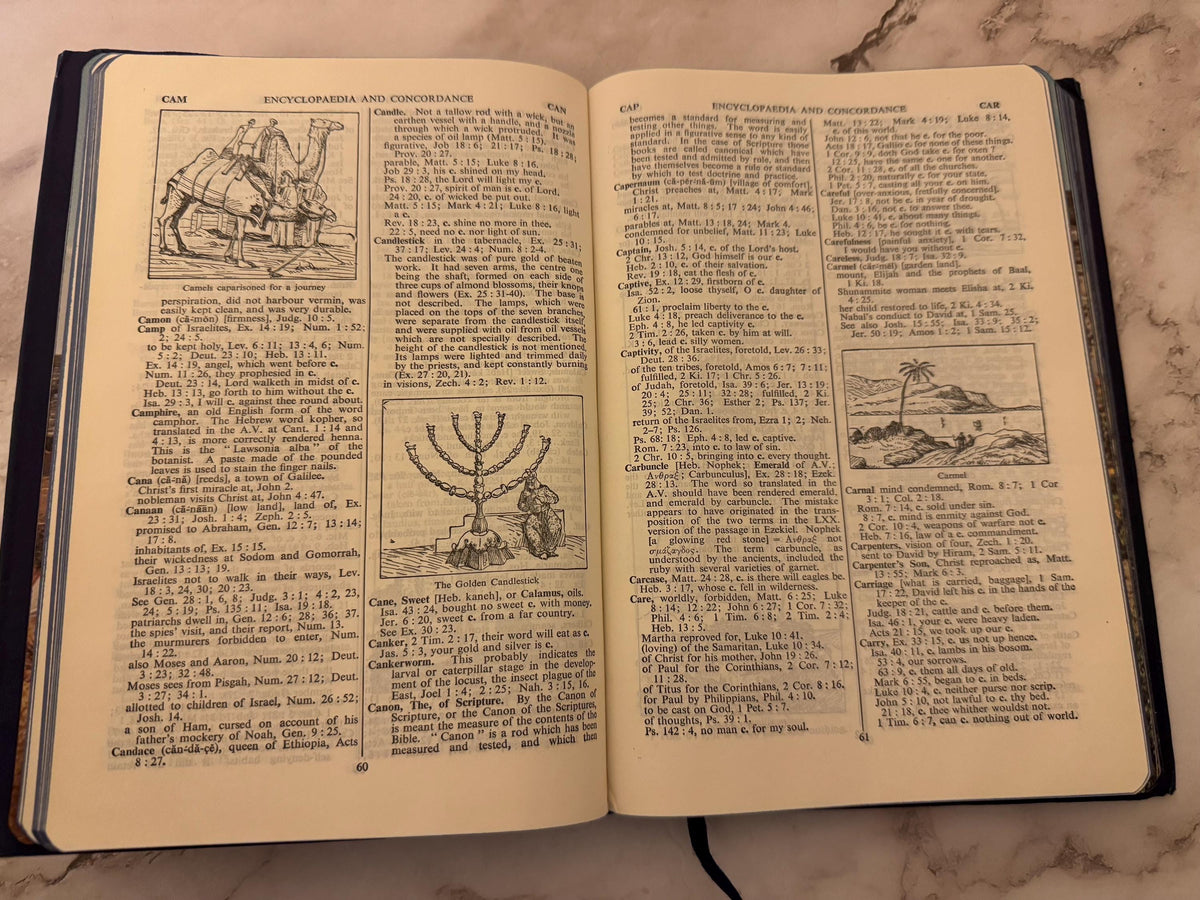 CAM ENCYCLOPAEDIA AND CONCORDANCE CAN
Camels caparisoned for a journey
perspiration, did not harbour vermin, was
easily kept clean, and was very durable.
Camon (cā-mŏn) [firmness], Judg. 10 : 5.
Camp of Israelites, Ex. 14 : 19; Num. 1 : 52;
2; 24 : 5.
to be kept holy, Lev. 6 : 11; 13 : 4, 6; Num.
5 : 2; Deut. 23 : 10; Heb. 13 : 11.
Ex. 14 : 19, angel, which went before c.
Num. 11 : 26, they prophesied in c.
Deut. 23 : 14, Lord walketh in midst of c.
Heb. 13 : 13, go forth to him without the c.
Isa. 29 : 3, I will c. against thee round about.
Camphire, an old English form of the word
camphor. The Hebrew word kopher, so
translated in the A.V. at Cant. 1 : 14 and
4 : 13, is more correctly rendered henna.
This is the "Lawsonia alba" of the
botanist. A paste made of the pounded
leaves is used to stain the finger nails.
Cana (cā-nă) [reeds], a town of Galilee.
Christ's first miracle at, John 2.
nobleman visits Christ at, John 4 : 47.
Canaan (cā-nāăn) [low land], land of, Ex.
23 : 31; Josh. 1 : 4; Zeph. 2 : 5.
promised to Abraham, Gen. 12 : 7; 13 : 14;
17 : 8.
inhabitants of, Ex. 15 : 15.
their wickedness at Sodom and Gomorrah,
Gen. 13 : 13; 19.
Israelites not to walk in their ways, Lev.
18 : 3, 24, 30; 20 : 23.
See Gen. 28 : 1, 6, 8; Judg. 3 : 1; 4 : 2, 23,
24; 5 : 19; Ps. 135 : 11; Isa. 19 : 18.
patriarchs dwell in, Gen. 12 : 6; 28; 36; 37.
the spies' visit, and their report, Num. 13.
the murmurers forbidden to enter, Num.
14 : 22.
also Moses and Aaron, Num. 20 : 12; Deut.
3 : 23; 32 : 48.
Moses sees from Pisgah, Num. 27 : 12; Deut.
3 : 27; 34 : 1.
allotted to children of Israel, Num. 26 : 52;
Josh. 14.
a son of Ham, cursed on account of his
father's mockery of Noah, Gen. 9 : 25.
Candace (căn-dā-çē), queen of Ethiopia, Acts
8 : 27.
Candle. Not a tallow rod with a wick, but an
earthen vessel with a handle, and a nozzle
through which a wick protruded. It was
a species of oil lamp (Matt. 5 : 15).
figurative, Job 18 : 6; 21 : 17; Ps. 18 : 28;
Prov. 20 : 27.
parable, Matt. 5 : 15; Luke 8 : 16.
Job 29 : 3, his c. shined on my head.
Ps. 18 : 28, the Lord will light my c.
Prov. 20 : 27, spirit of man is c. of Lord.
24 : 20, c. of wicked be put out.
Matt. 5 : 15; Mark 4 : 21; Luke 8 : 16, light
a c.
Rev. 18 : 23, c. shine no more in thee.
22 : 5, need no c. nor light of sun.
Candlestick in the tabernacle, Ex. 25 : 31;
37 : 17; Lev. 24 : 4; Num. 8 : 2-4.
The candlestick was of pure gold of beaten
work. It had seven arms, the centre one
being the shaft, formed on each side of
three cups of almond blossoms, their knops
and flowers (Ex. 25 : 31-40). The base is
not described. The lamps, which were
placed on the tops of the seven branches,
were separate from the candlestick itself,
and were supplied with oil from oil vessels
which are not specially described. The
height of the candlestick is not mentioned.
Its lamps were lighted and trimmed daily
by the priests, and kept constantly burning
(Ex. 27 : 20, 21).
in visions, Zech. 4 : 2; Rev. 1 : 12.
The Golden Candlestick
Cane, Sweet [Heb. kaneh], or Calamus, oils.
Isa. 43 : 24, bought no sweet c. with money.
Jer. 6 : 20, sweet c. from a far country.
See Ex. 30 : 23.
Canker, 2 Tim. 2 : 17, their word will eat as c.
Jas. 5 : 3, your gold and silver is c.
Cankerworm. This probably indicates the
larval or caterpillar stage in the develop-
ment of the locust, the insect plague of the
East, Joel 1 : 4; 2 : 25; Nah. 3 : 15, 16.
Canon, The, of Scripture. By the Canon of
Scripture, or the Canon of the Scriptures,
is meant the measure of the contents of the
Bible. "Canon" is a rod which has been
measured and tested, and which then
60
CAP ENCYCLOPAEDIA AND CONCORDANCE CAR
becomes a standard for measuring and
testing other things. The word is easily
applied in a figurative sense to any kind of
standard. In the case of Scripture those
books are called canonical which have
been tested and admitted by rule, and then
have themselves become a rule or standard
by which to test doctrine and practice.
Capernaum (cā-pẽr-nā-ŭm) [village of comfort],
Christ preaches at, Matt. 4 : 17; Mark
1 : 21.
miracles at, Matt. 8 : 5; 17 : 24; John 4 : 46,
6 : 17.
parables at, Matt. 13 : 18, 24; Mark 4.
condemned for unbelief, Matt. 11 : 23; Luke
10 : 15.
Captain, Josh. 5 : 14, c. of the Lord's host.
2 Chr. 13 : 12, God himself is our c.
Heb. 2 : 10, c. of their salvation.
Rev. 19 : 18, eat the flesh of c.
Captive, Ex. 12 : 29, firstborn of c.
Isa. 52 : 2, loose thyself, O c. daughter of
Zion.
61 : 1, proclaim liberty to the c.
Luke 4 : 18, preach deliverance to the c.
Eph. 4 : 8, he led captivity c.
2 Tim. 2 : 26, taken c. by him at will.
3 : 6, lead c. silly women.
Captivity, of the Israelites, foretold, Lev. 26 : 33;
Deut. 28 : 36.
of the ten tribes, foretold, Amos 6 : 7; 7 : 11;
fulfilled, 2 Ki. 17; 1 Chr. 5 : 26.
of Judah, foretold, Isa. 39 : 6; Jer. 13 : 19;
20 : 4; 25 : 11; 32 : 28; fulfilled, 2 Ki.
25; 2 Chr. 36; Esther 2; Ps. 137; Jer.
39; 52; Dan. 1.
return of the Israelites from, Ezra 1; 2; Neh.
2-7; Ps. 126.
Ps. 68 : 18; Eph. 4 : 8, led c. captive.
Rom. 7 : 23, into c. to law of sin.
2 Chr. 10 : 5, bringing into c. every thought.
Carbuncle [Heb. Nophek; Emerald of A.V.;
Ἄνθραξ; Carbunculus], Ex. 28 : 18; Ezek.
28 : 13. The word so translated in the
A.V. should have been rendered emerald,
and emerald by carbuncle. The mistake
appears to have originated in the trans-
position of the two terms in the LXX.
version of the passage in Ezekiel. Nophek
[a glowing red stone] = Ἄνθραξ not
σμάραγδος. The term carbuncle, as
understood by the ancients, included the
ruby with several varieties of garnet.
Carcase, Matt. 24 : 28, c. is there will eagles be.
Heb. 3 : 17, whose c. fell in wilderness.
Care, worldly, forbidden, Matt. 6 : 25; Luke
8 : 14; 12 : 22; John 6 : 27; 1 Cor. 7 : 32;
Phil. 4 : 6; 1 Tim. 6 : 8; 2 Tim. 2 : 4;
Heb. 13 : 5.
Martha reproved for, Luke 10 : 41.
(loving) of the Samaritan, Luke 10 : 34.
of Christ for his mother, John 19 : 26.
of Paul for the Corinthians, 2 Cor. 7 : 12;
11 : 28.
of Titus for the Corinthians, 2 Cor. 8 : 16.
for Paul by Philippians, Phil. 4 : 10.
to be cast on God, 1 Pet. 5 : 7.
of thoughts, Ps. 39 : 1.
Ps. 142 : 4, no man c. for my soul.
Matt. 13 : 22; Mark 4 : 19; Luke 8 : 14,
c. of this world.
John 12 : 6, not that he c. for the poor.
Acts 18 : 17, Gallio c. for none of these things.
1 Cor. 9 : 9, doth God take c. for oxen?
12 : 25, have the same c. one for another.
2 Cor. 11 : 28, c. of all the churches.
Phil. 2 : 20, naturally c. for your state.
1 Pet. 5 : 7, casting all your c. on him.
Careful [over-anxious, fretfully concerned].
Jer. 17 : 8, not be c. in year of drought.
Dan. 3 : 16, not c. to answer thee.
Luke 10 : 41, c. about many things.
Phil. 4 : 6, be c. for nothing.
Heb. 12 : 17, he sought it c. with tears.
Carefulness [painful anxiety], 1 Cor. 7 : 32,
I would have you without c.
Careless, Judg. 18 : 7; Isa. 32 : 9.
Carmel (cär-mĕl) [garden land].
mount, Elijah and the prophets of Baal,
1 Ki. 18.
Shunammite woman meets Elisha at, 2 Ki.
4 : 25.
her child restored to life, 2 Ki. 4 : 34.
Nabal's conduct to David at, 1 Sam. 25.
See also Josh. 15 : 55; Isa. 33 : 9; 35 : 2;
Jer. 50 : 19; Amos 1 : 2; 1 Sam. 15 : 12.
Carmel
Carnal mind condemned, Rom. 8 : 7; 1 Cor
3 : 1; Col. 2 : 18.
Rom. 7 : 14, c. sold under sin.
8 : 7, c. mind is enmity against God.
2 Cor. 10 : 4, weapons of warfare not c.
Heb. 7 : 16, law of a c. commandment.
Carpenters, vision of four, Zech. 1 : 20.
sent to David by Hiram, 2 Sam. 5 : 11.
Carpenter's Son, Christ reproached as, Matt.
13 : 55; Mark 6 : 3.
Carriage [what is carried, baggage], 1 Sam.
17 : 22, David left his c. in the hands of the
keeper of the c.
Judg. 18 : 21, cattle and c. before them.
Isa. 46 : 1, your c. were heavy laden.
Acts 21 : 15, we took up our c.
Carry, Ex. 33 : 15, c. us not up hence.
Isa. 40 : 11, c. lambs in his bosom.
53 : 4, our sorrows.
63 : 9, c. them all days of old.
Mark 6 : 55, began to c. in beds.
Luke 10 : 4, c. neither purse nor scrip.
John 5 : 10, not lawful to c. thy bed.
21 : 18, c. thee whither wouldst not.
1 Tim. 6 : 7, can c. nothing out of world.
61